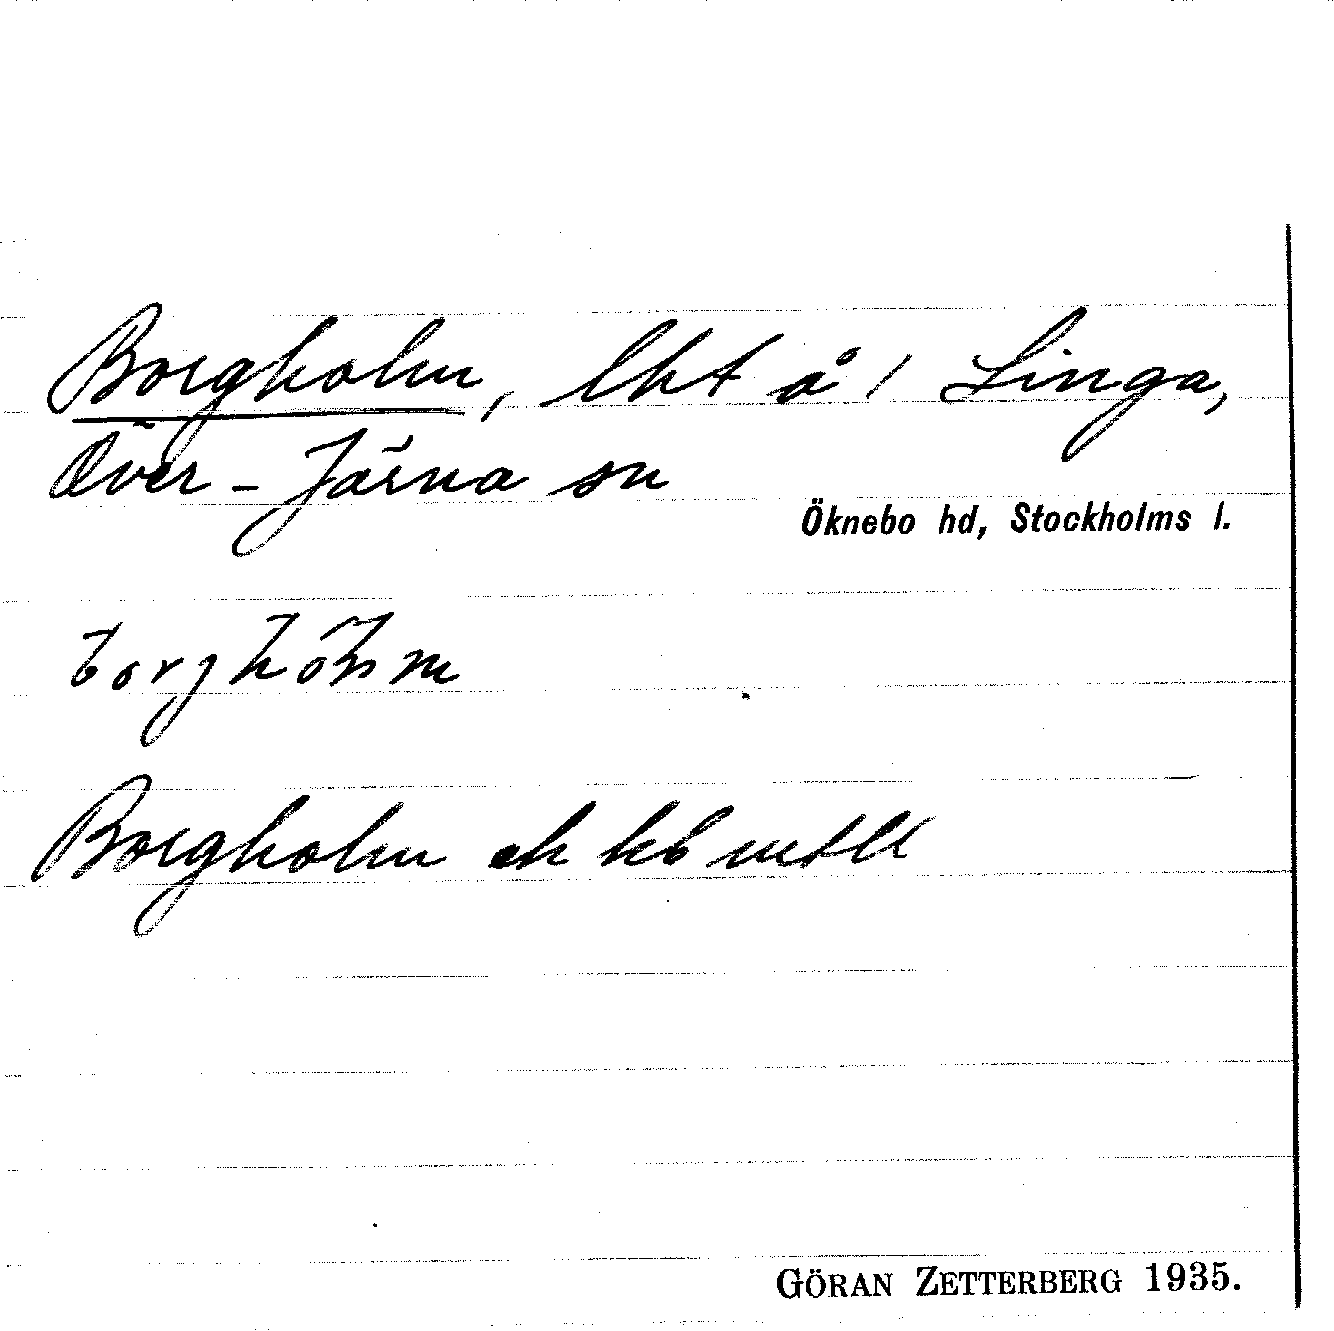 Borgholm, lht å 1 Linga,
Över-Järna sn
Öknebo hd, Stockholms l.
Borgholm ek kb mtll
GÖRAN ZETTERBERG 1935.